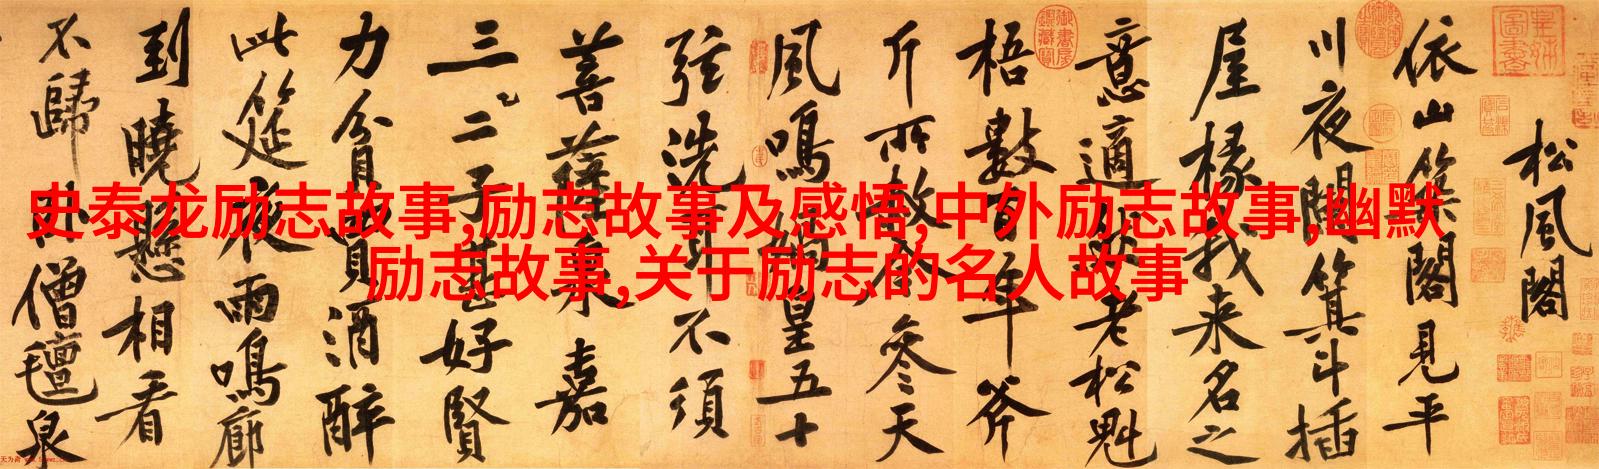 史泰龙励志故事,励志故事及感悟,中外励志故事,幽默
励志故事,关于励志的名人故事
松風閣
依山築閣見平
川夜闌箕斗插
屋椽我来名之
意適然老松魁
梧數百年斧
斤所赦今參天
風鳴媧皇五十
弦洗耳不須
菩薩泉嘉
三二子甚好賢
力貧買酒醉
此筵夜雨鳴廊
到曉懸相看
不歸卧僧氈泉
皇姊圖書
御書房鑑藏寶